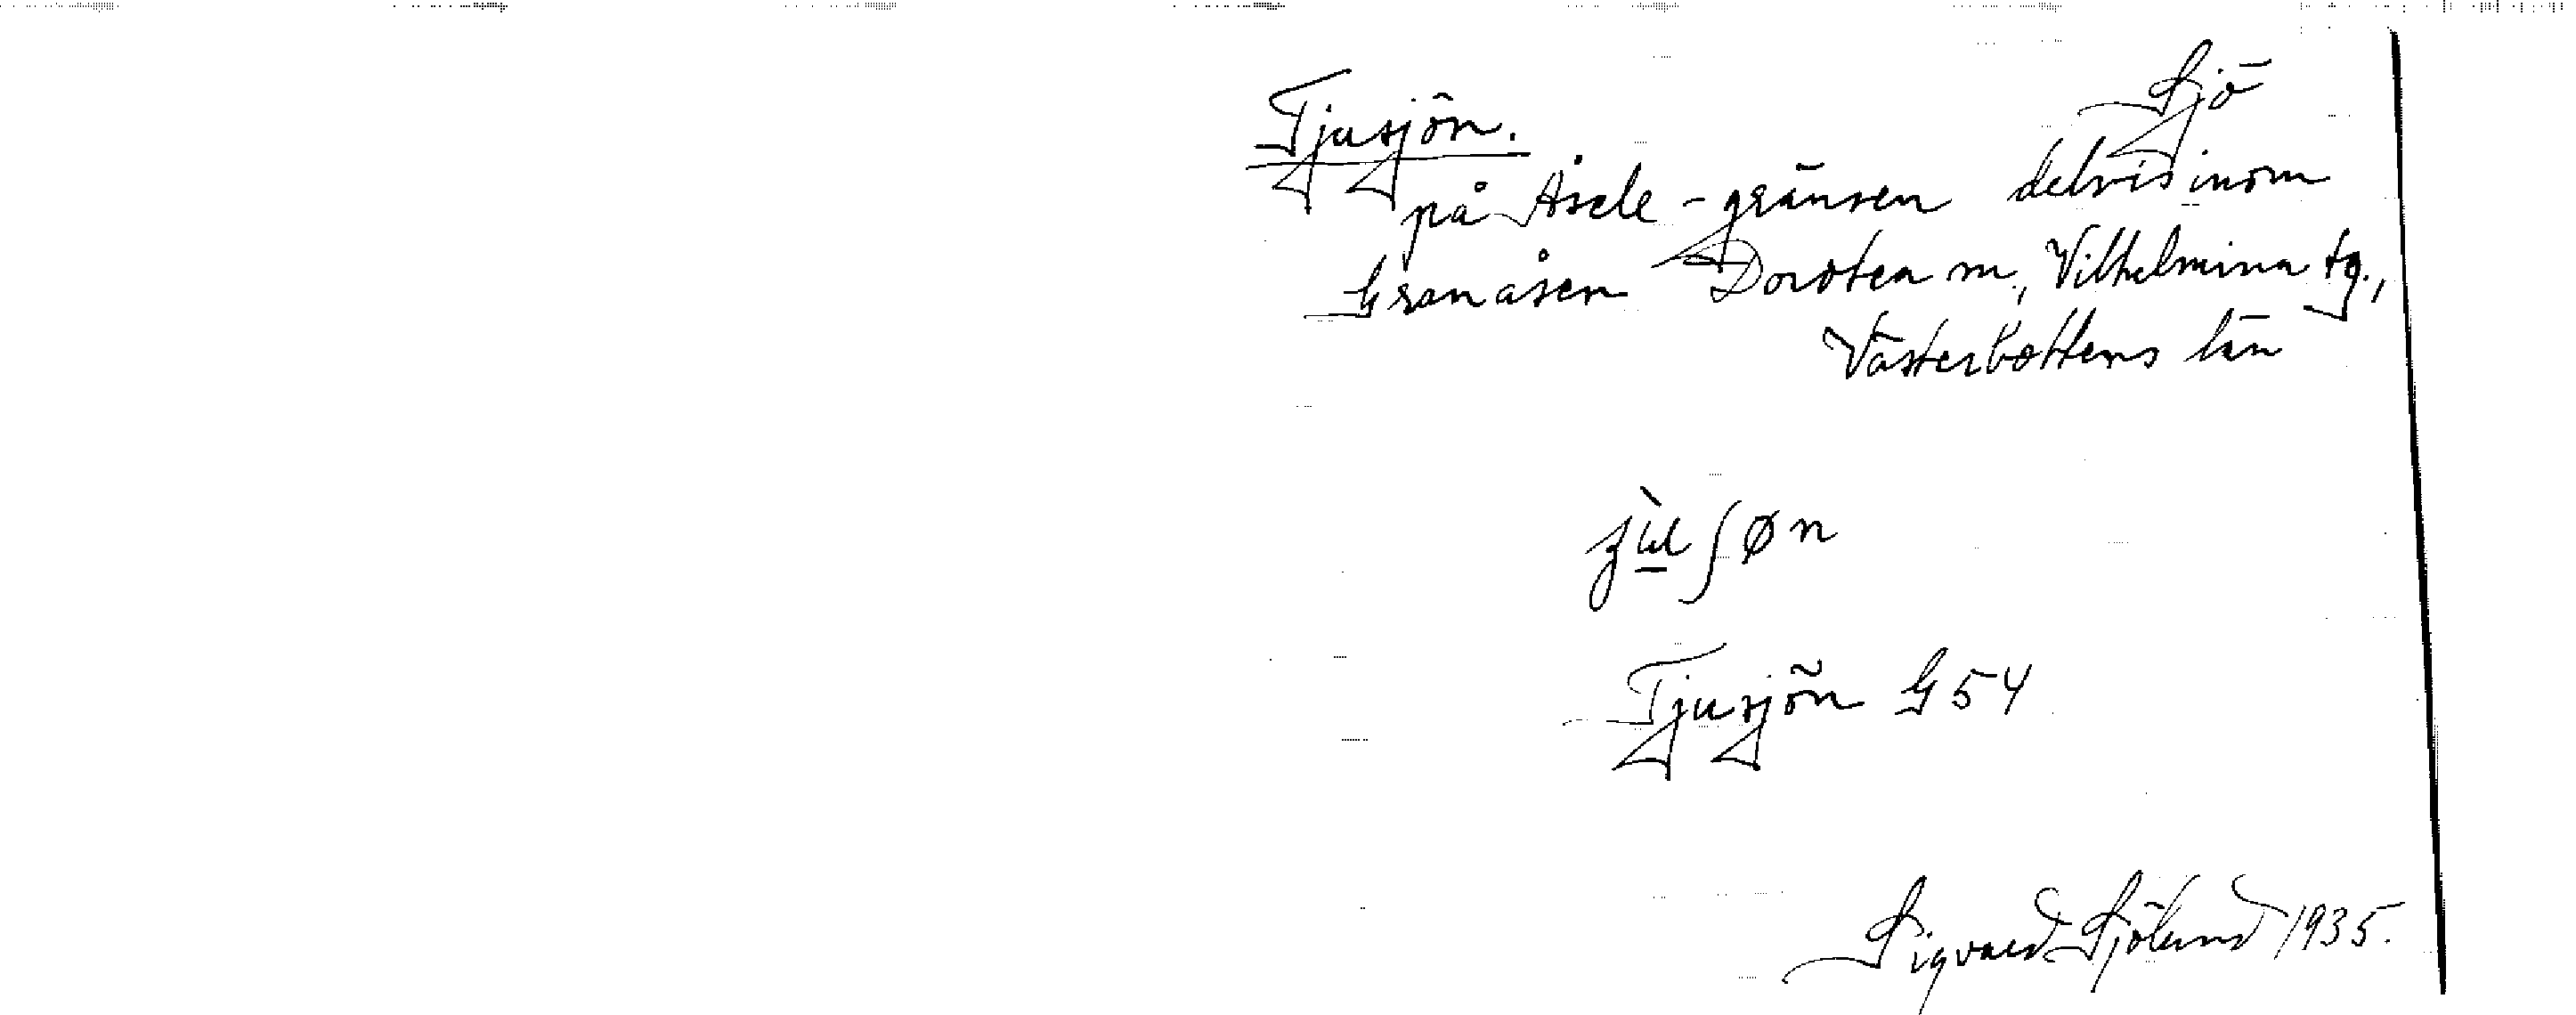 Tjusjön. Sjö
på Åsele-gränsen delvis inom
Granåsen Dorotea m., Vilhelmina tg.,
Västerbottens län
Tjusjön G54
Sigvard Sjölund 1935.